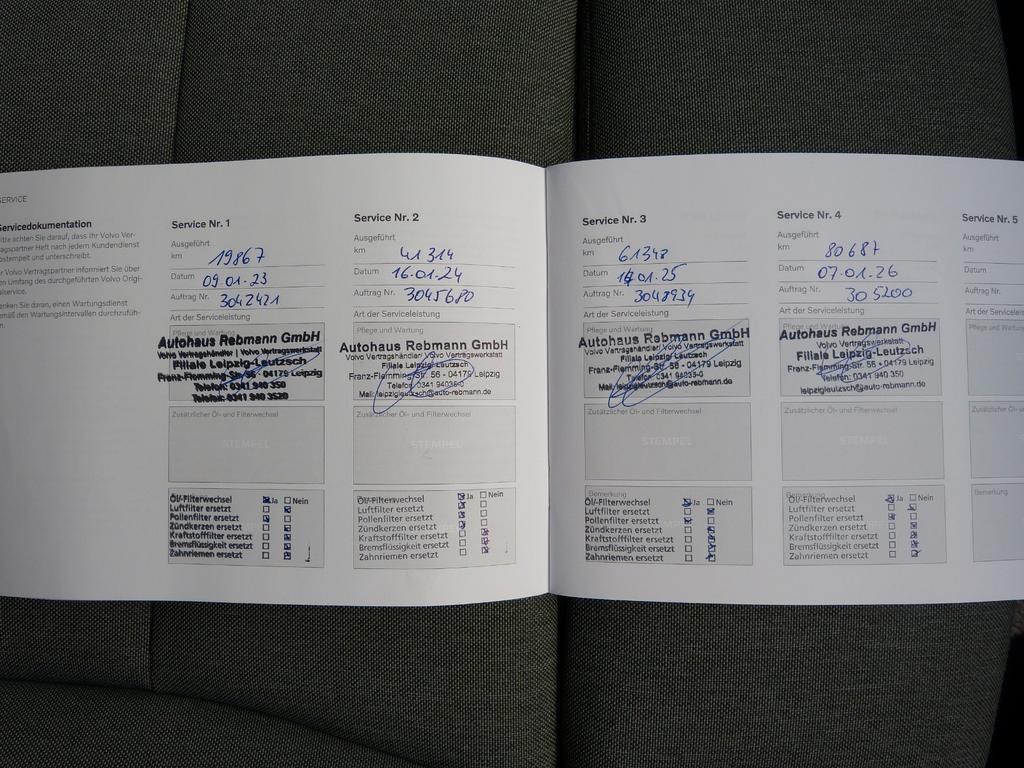 SERVICE
Servicedokumentation
Bitte achten Sie darauf, dass Ihr Volvo Ver-
tragspartner Heft nach jedem Kundendienst
abstempelt und unterschreibt.
Volvo Vertragspartner informiert Sie über
Umfang des durchgeführten Volvo Origi-
nalservice.
denken Sie daran, einen Wartungsdienst
gemäß den Wartungsintervallen durchzufüh-
Service Nr. 1
Ausgeführt
km 19867
Datum 09.01.23
Auftrag Nr. 3042421
Art der Serviceleistung
Pflege und Wartung
Autohaus Rebmann GmbH
Volvo Vertragshändler / Volvo Vertragswerkstatt
Filiale Leipzig-Leutzsch
Franz-Flemming-Str. 56 - 04179 Leipzig
Telefon: 0341 940 350
Telefax: 0341 940 3520
Zusätzlicher Öl- und Filterwechsel
STEMPEL
Öl/-Filterwechsel Ja Nein
Luftfilter ersetzt
Pollenfilter ersetzt
Zündkerzen ersetzt
Kraftstofffilter ersetzt
Bremsflüssigkeit ersetzt
Zahnriemen ersetzt
Service Nr. 2
Ausgeführt
km 41314
Datum 16.01.24
Auftrag Nr. 3045680
Art der Serviceleistung
Pflege und Wartung
Autohaus Rebmann GmbH
Volvo Vertragshändler/ Volvo Vertragswerkstatt
Filiale Leipzig-Leutzsch
Franz-Flemming-Str. 56 • 04179 Leipzig
Telefon: 0341 94035-0
Mail: leipzigleutzsch@auto-rebmann.de
Zusätzlicher Öl- und Filterwechsel
STEMPEL
Öl/-Filterwechsel Ja Nein
Luftfilter ersetzt
Pollenfilter ersetzt
Zündkerzen ersetzt
Kraftstofffilter ersetzt
Bremsflüssigkeit ersetzt
Zahnriemen ersetzt
Service Nr. 3
Ausgeführt
km 61348
Datum 01.25
Auftrag Nr. 3048934
Art der Serviceleistung
Pflege und Wartung
Autohaus Rebmann GmbH
Volvo Vertragshändler/ Volvo Vertragswerkstatt
Filiale Leipzig-Leutzsch
Franz-Flemming-Str. 56 • 04179 Leipzig
Telefon: 0341 94035-0
Mail: leipzigleutzsch@auto-rebmann.de
Zusätzlicher Öl- und Filterwechsel
STEMPEL
Bemerkung
Öl/-Filterwechsel Ja Nein
Luftfilter ersetzt
Pollenfilter ersetzt
Zündkerzen ersetzt
Kraftstofffilter ersetzt
Bremsflüssigkeit ersetzt
Zahnriemen ersetzt
Service Nr. 4
Ausgeführt
km 80687
Datum 07.01.26
Auftrag Nr. 305200
Art der Serviceleistung
Pflege und Wartung
Autohaus Rebmann GmbH
Volvo Vertragshändler / Volvo Vertragswerkstatt
Filiale Leipzig-Leutzsch
Franz-Flemming-Str. 56 • 04179 Leipzig
Telefon: 0341 940 350
leipzigleutzsch@auto-rebmann.de
Zusätzlicher Öl- und Filterwechsel
STEMPEL
Bemerkung
Öl/-Filterwechsel Ja Nein
Luftfilter ersetzt
Pollenfilter ersetzt
Zündkerzen ersetzt
Kraftstofffilter ersetzt
Bremsflüssigkeit ersetzt
Zahnriemen ersetzt
Service Nr. 5
Ausgeführt
km
Datum
Auftrag Nr.
Art der Serviceleistung
Pflege und Wartung
Zusätzlicher Öl- und
Bemerkung